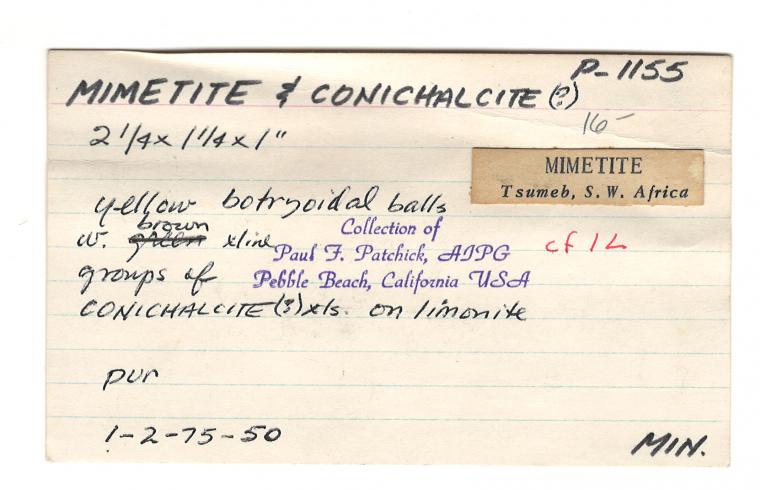 P-1155
MIMETITE & CONICHALCITE (?)
16-
2 1/4 x 1 1/4 x 1"
MIMETITE
Tsumeb, S. W. Africa
yellow botryoidal balls
brown
w. green xline
groups of
CONICHALCITE (?) xls. on limonite
Collection of
Paul F. Patchick, AIPG
Pebble Beach, California USA
cf 1L
pur
1-2-75-50
MIN.